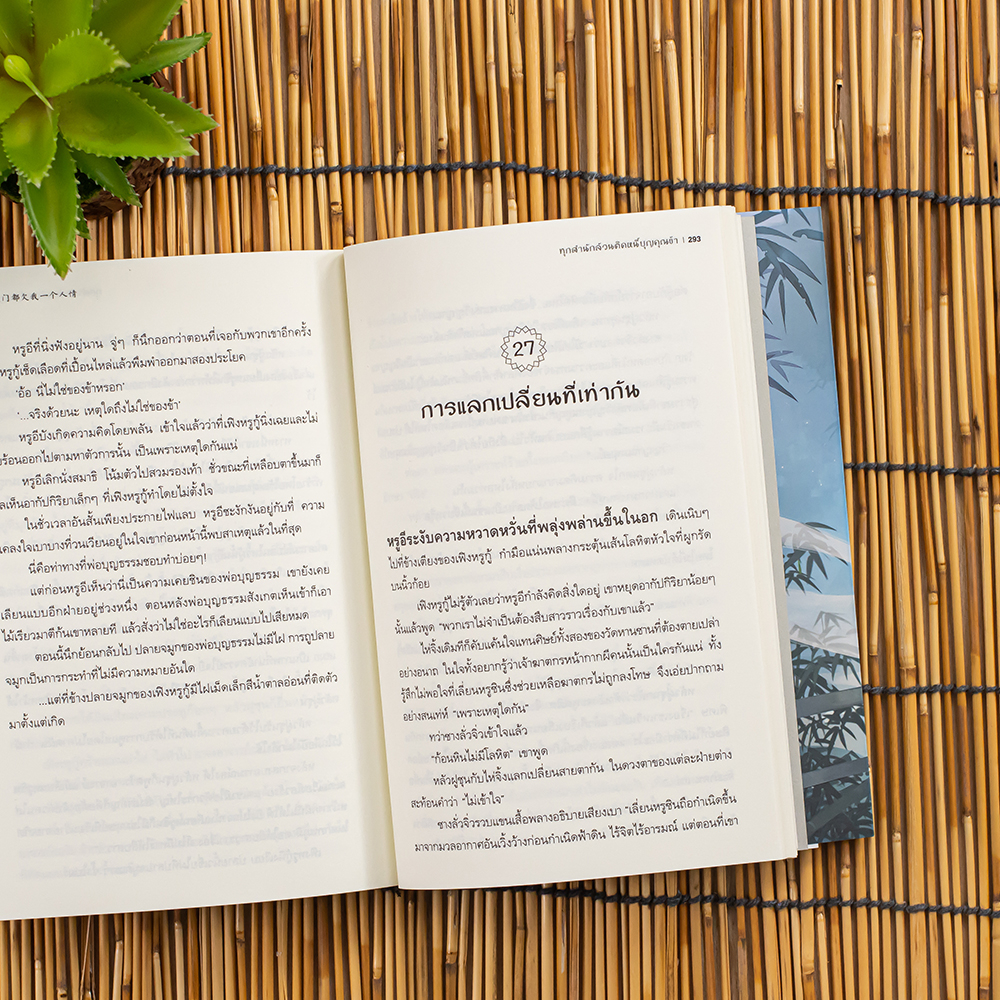 门都欠我一个人情
หรูอีที่นิ่งฟังอยู่นาน จู่ๆ ก็นึกออกว่าตอนที่เจอกับพวกเขาอีกครั้ง
หรูกู้เช็ดเลือดที่เปื้อนไหล่แล้วพึมพำออกมาสองประโยค
‘อ้อ นี่ไม่ใช่ของข้าหรอก’
‘...จริงด้วยนะ เหตุใดถึงไม่ใช่ของข้า’
หรูอีบังเกิดความคิดโดยพลัน เข้าใจแล้วว่าที่เฟิงหรูกู้นิ่งเฉยและไม่
ร้อนออกไปตามหาตัวการนั้น เป็นเพราะเหตุใดกันแน่
หรูอีเลิกนั่งสมาธิ โน้มตัวไปสวมรองเท้า ชั่วขณะที่เหลือบตาขึ้นมาก็
เห็นอากัปกิริยาเล็กๆ ที่เฟิงหรูกู้ทำโดยไม่ตั้งใจ
ในชั่วเวลาอันสั้นเพียงประกายไฟแลบ หรูอีชะงักงันอยู่กับที่ ความ
แคลงใจเบาบางที่วนเวียนอยู่ในใจเขาก่อนหน้านี้พบสาเหตุแล้วในที่สุด
นี่คือท่าทางที่พ่อบุญธรรมชอบทำบ่อยๆ!
แต่ก่อนหรูอีเห็นว่านี่เป็นความเคยชินของพ่อบุญธรรม เขายังเคย
เลียนแบบอีกฝ่ายอยู่ช่วงหนึ่ง ตอนหลังพ่อบุญธรรมสังเกตเห็นเข้าก็เอา
ไม้เรียวมาตีก้นเขาหลายที แล้วสั่งว่าไม่ใช่อะไรก็เลียนแบบไปเสียหมด
ตอนนี้นึกย้อนกลับไป ปลายจมูกของพ่อบุญธรรมไม่มีไฝ การถูปลาย
จมูกเป็นการกระทำที่ไม่มีความหมายอันใด
...แต่ที่ข้างปลายจมูกของเฟิงหรูกู้มีไฝเม็ดเล็กสีน้ำตาลอ่อนที่ติดตัว
มาตั้งแต่เกิด
ทุกสำนักล้วนติดหนี้บุญคุณข้า | 293
27
การแลกเปลี่ยนที่เท่ากัน
หรูอีระงับความหวาดหวั่นที่พลุ่งพล่านขึ้นในอก เดินเนิบๆ
ไปที่ข้างเตียงของเฟิงหรูกู้ กำมือแน่นพลางกระตุ้นเส้นโลหิตหัวใจที่ผูกรัด
บนนิ้วก้อย
เฟิงหรูกู้ไม่รู้ตัวเลยว่าหรูอีกำลังคิดสิ่งใดอยู่ เขาหยุดอากัปกิริยาน้อยๆ
นั้นแล้วพูด “พวกเราไม่จำเป็นต้องสืบสาวราวเรื่องกับเขาแล้ว”
ไห่จิ้งเดิมทีก็คับแค้นใจแทนศิษย์ทั้งสองของวัดหานซานที่ต้องตายเปล่า
อย่างอนาถ ในใจทั้งอยากรู้ว่าเจ้าฆาตกรหน้ากากผีคนนั้นเป็นใครกันแน่ ทั้ง
รู้สึกไม่พอใจที่เลี่ยนหรูซินซึ่งช่วยเหลือฆาตกรไม่ถูกลงโทษ จึงเอ่ยปากถาม
อย่างสนเท่ห์ “เพราะเหตุใดกัน”
ทว่าซางลั่วจิ่วเข้าใจแล้ว
“ก้อนหินไม่มีโลหิต” เขาพูด
หลัวฝูชุนกับไห่จิ้งแลกเปลี่ยนสายตากัน ในดวงตาของแต่ละฝ่ายต่าง
สะท้อนคำว่า “ไม่เข้าใจ”
ซางลั่วจิ่วรวบแขนเสื้อพลางอธิบายเสียงเบา “เลี่ยนหรูซินถือกำเนิดขึ้น
มาจากมวลอากาศอันเวิ้งว้างก่อนกำเนิดฟ้าดิน ไร้จิตไร้อารมณ์ แต่ตอนที่เขา